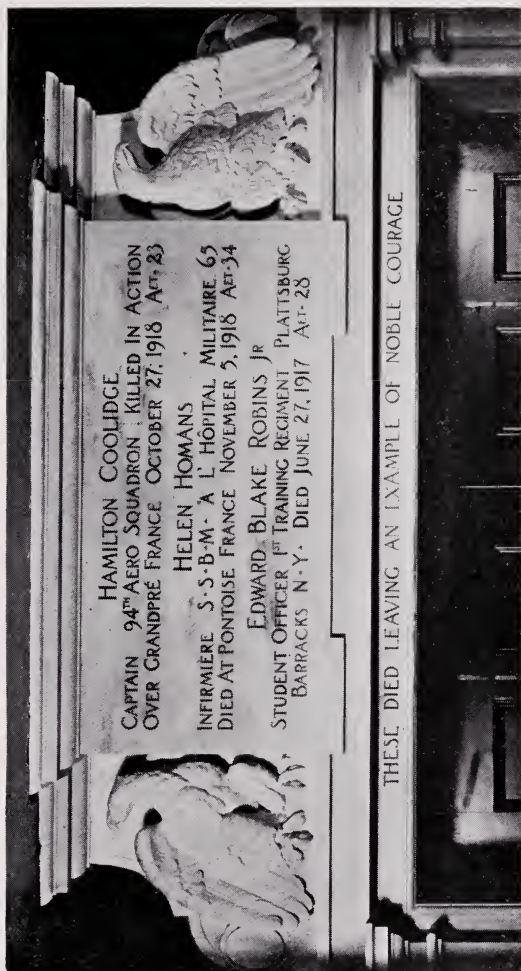 HAMILTON COOLIDGE
CAPTAIN 94TH AERO SQUADRON KILLED IN ACTION
OVER GRANDPRÉ FRANCE OCTOBER 27, 1918 AET· 23
HELEN HOMANS
INFIRMIÈRE S·S·B·M· A L' HÔPITAL MILITAIRE 65
DIED AT PONTOISE FRANCE NOVEMBER 5, 1918 AET·34
EDWARD BLAKE ROBINS JR
STUDENT OFFICER 1ST TRAINING REGIMENT PLATTSBURG
BARRACKS N·Y· DIED JUNE 27, 1917 AET· 28
THESE DIED LEAVING AN EXAMPLE OF NOBLE COURAGE